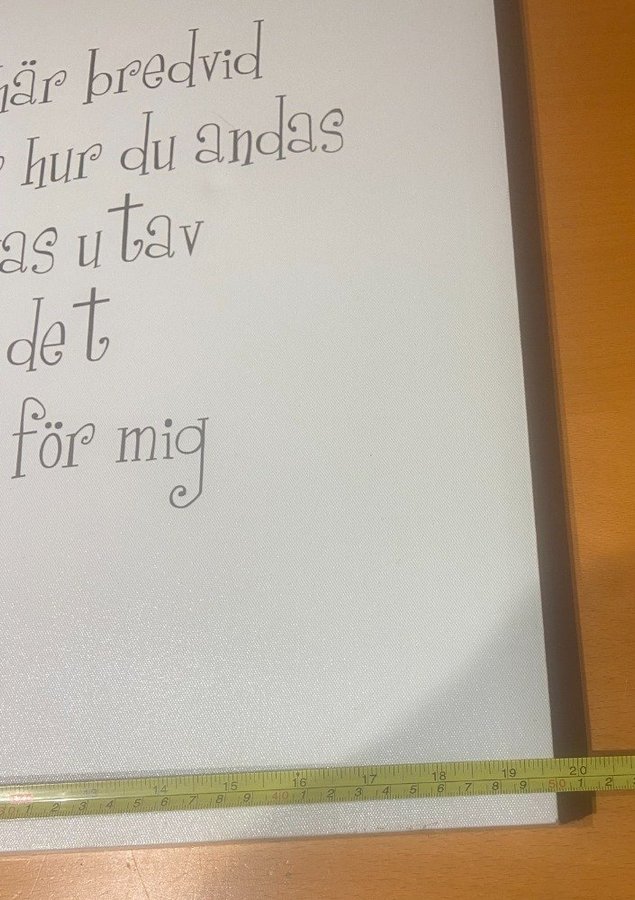 här bredvid
hur du andas
as utav
det
för mig
13 14 15 16 17 18 19 20
1 2 3 4 5 6 7 8 9 40 1 2 3 4 5 6 7 8 9 50 1 2